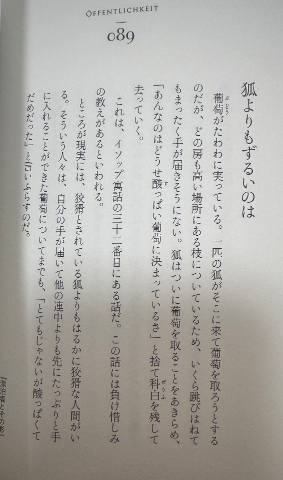 ÖFFENTLICHKEIT
089
狐よりもずるいのは
葡萄がたわわに実っている。一匹の狐がそこに来て葡萄を取ろうとする
ぶどう
のだが、どの房も高い場所にある枝についているため、いくら跳びはねて
もまったく手が届きそうにない。狐はついに葡萄を取ることをあきらめ、
「あんなのはどうせ酸っぱい葡萄に決まっているさ」と捨て科白を残して
す
ぜりふ
去っていく。
これは、イソップ寓話の三十二番目にある話だ。この話には負け惜しみ
の教えがあるといわれる。
ところが現実には、狡猾とされている狐よりもはるかに狡猾な人間がい
る。そういう人々は、自分の手が届いて他の連中よりも先にたっぷりと手
に入れることができた葡萄についてまでも、「とてもじゃないが酸っぱくて
だめだった」と言いふらすのだ。
『漂泊者とその影』